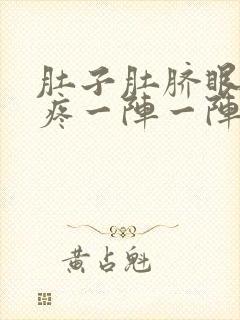 肚子肚脐眼
疼一陣一陣
黄占魁